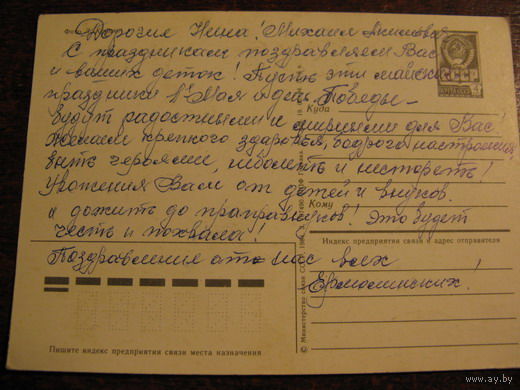 Дорогие Нина! Михаил Акимович
С праздником поздравляем Вас
и ваших деток! Пусть эти майские
праздники 1 Мая и день Победы –
будут радостными и мирными для Вас!
Желаем крепкого здоровья, бодрого настроения,
быть героями, не болеть и не стареть!
Уважения Вам от детей и внуков.
и дожить до праправнуков! Это будет
честь и похвала!
Поздравление от нас всех
Ермолинских!
СССР
4
Куда
Кому
Индекс предприятия связи и адрес отправителя
Пишите индекс предприятия связи места назначения
© Министерство связи СССР